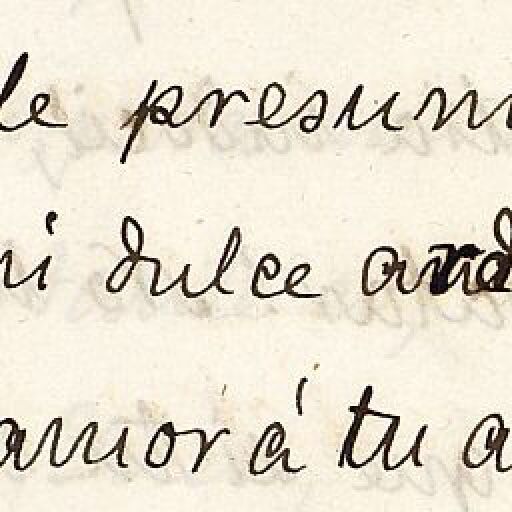 le presum
mi dulce
amor á tu a